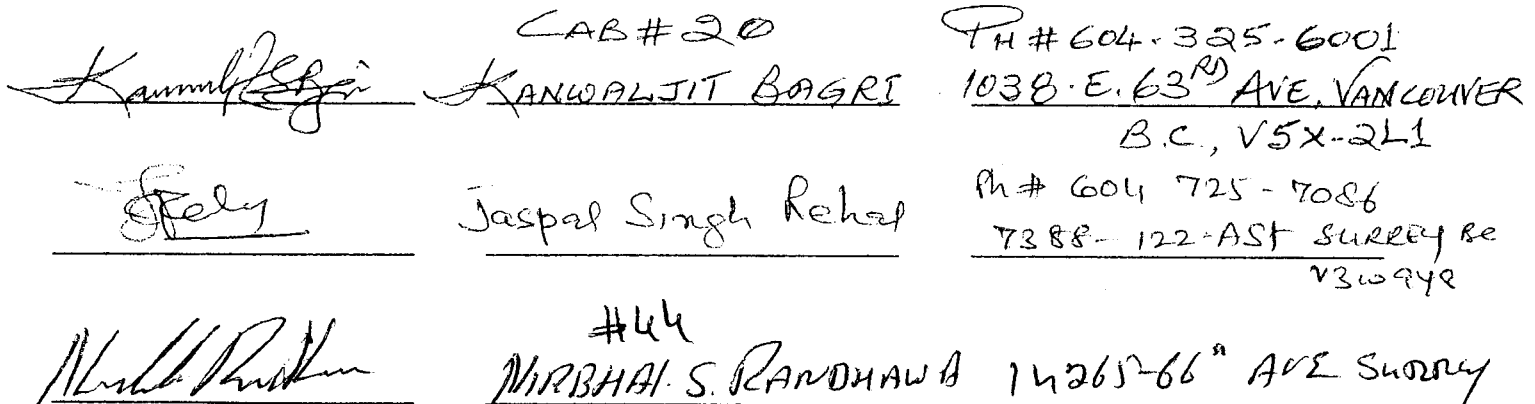 CAB # 20
PH # 604-325-6001
KANWALJIT BAGRI 1038·E. 63RD AVE, VANCOUVER
B.C., V5X-2L1
Ph # 604 725-7086
Jaspal Singh Rehal
7388-122-ASt SURREY BC
V3W
#44
NIRBHAI. S. RANDHAWA 14265-66 AVE Surrey